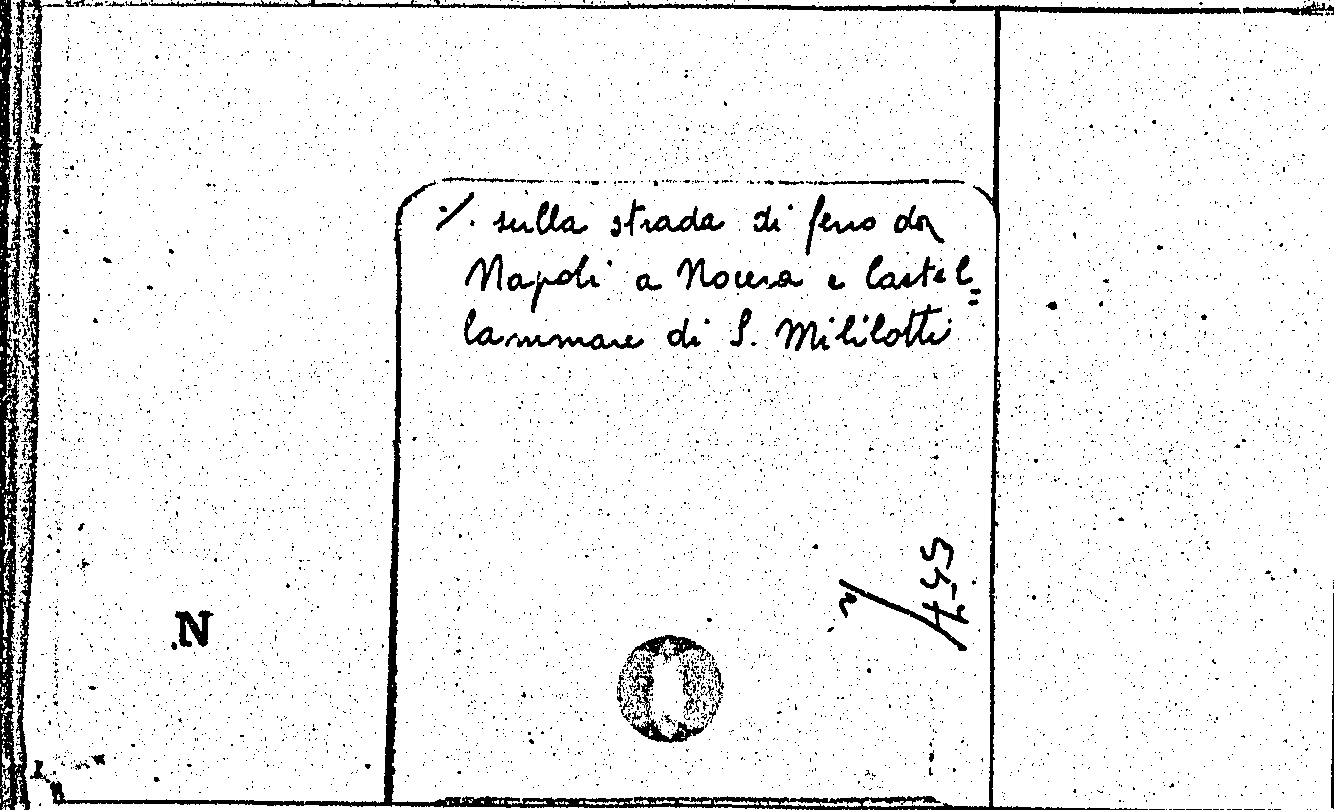 ·/. sulla strada di ferro da
Napoli a Nocera e Castel=
lammare di S. Mililotti
N